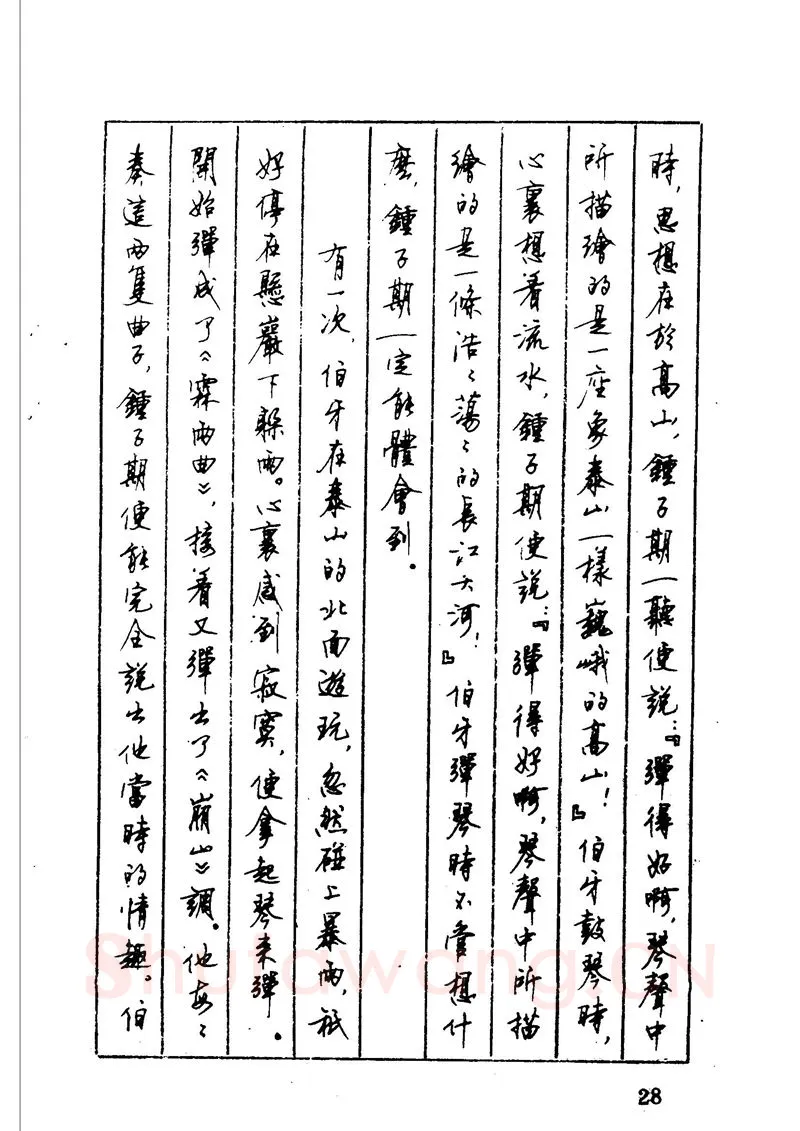 時，思想在於高山，鍾子期一聽便説：『彈得好啊，琴聲中
所描繪的是一座象泰山一樣巍峨的高山！』伯牙鼓琴時，
心裏想着流水，鍾子期便説：『彈得好啊，琴聲中所描
繪的是一條浩〻蕩〻的長江大河！』伯牙彈琴時不管想什
麽，鍾子期一定能體會到。
有一次，伯牙在泰山的北面遊玩，忽然碰上暴雨，祇
好停在懸巖下躲雨。心裏感到寂寞，便拿起琴來彈。
開始彈成了《霖雨曲》，接着又彈出了《崩山》調。他每〻
奏這兩隻曲子，鍾子期便能完全説出他當時的情趣。伯
Shufawang.CN
28